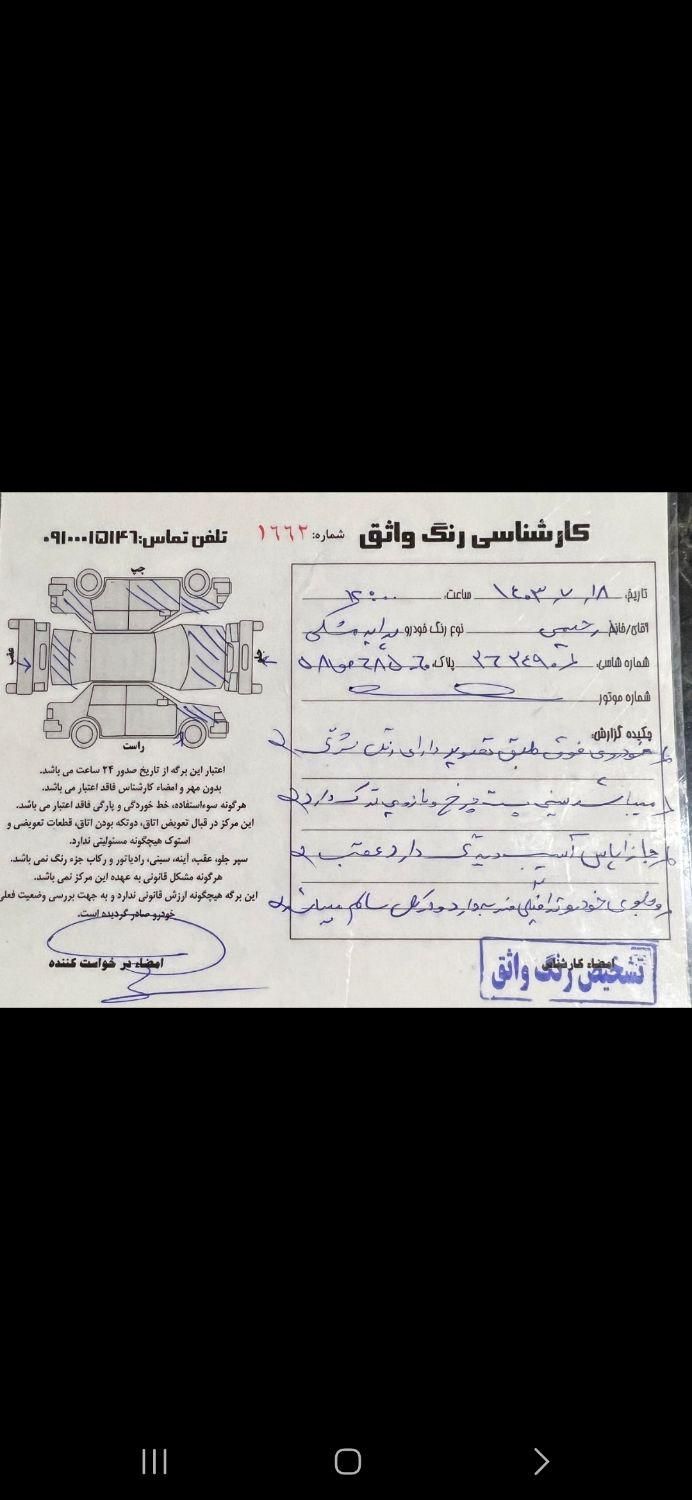 کارشناسی رنگ واثق
شماره: ۱۶۶۲
تلفن تماس: ۰۹۱۰۰۰۱۵۱۴۶
تاریخ: ۱۴۰۳/۷/۱۸ ساعت:
آقای/خانم رحیمی نوع رنگ خودرو پراید مشکی
شماره شاسی: پلاک:
شماره موتور
چکیده گزارش:
خودروی فوق طبق تصویر دارای رنگ
میباشد سینی پشت چرخ و بازویی ترک دارد
جا زاپاس آسیب دارد عقب
و جلوی خودرو ضربه دارد و در کل سالم میباشد
امضاء کارشناس
تشخیص رنگ واثق
چپ
عقب
جلو
راست
اعتبار این برگه از تاریخ صدور ۲۴ ساعت می باشد.
بدون مهر و امضاء کارشناس فاقد اعتبار می باشد.
هرگونه سوءاستفاده، خط خوردگی و پارگی فاقد اعتبار می باشد.
این مرکز در قبال تعویض اتاق، دوتکه بودن اتاق، قطعات تعویضی و
استوک هیچگونه مسئولیتی ندارد.
سپر جلو، عقب، آینه، سینی، رادیاتور و رکاب جزء رنگ نمی باشد.
هرگونه مشکل قانونی به عهده این مرکز نمی باشد.
این برگه هیچگونه ارزش قانونی ندارد و به جهت بررسی وضعیت فعلی
خودرو صادر گردیده است.
امضاء در خواست کننده